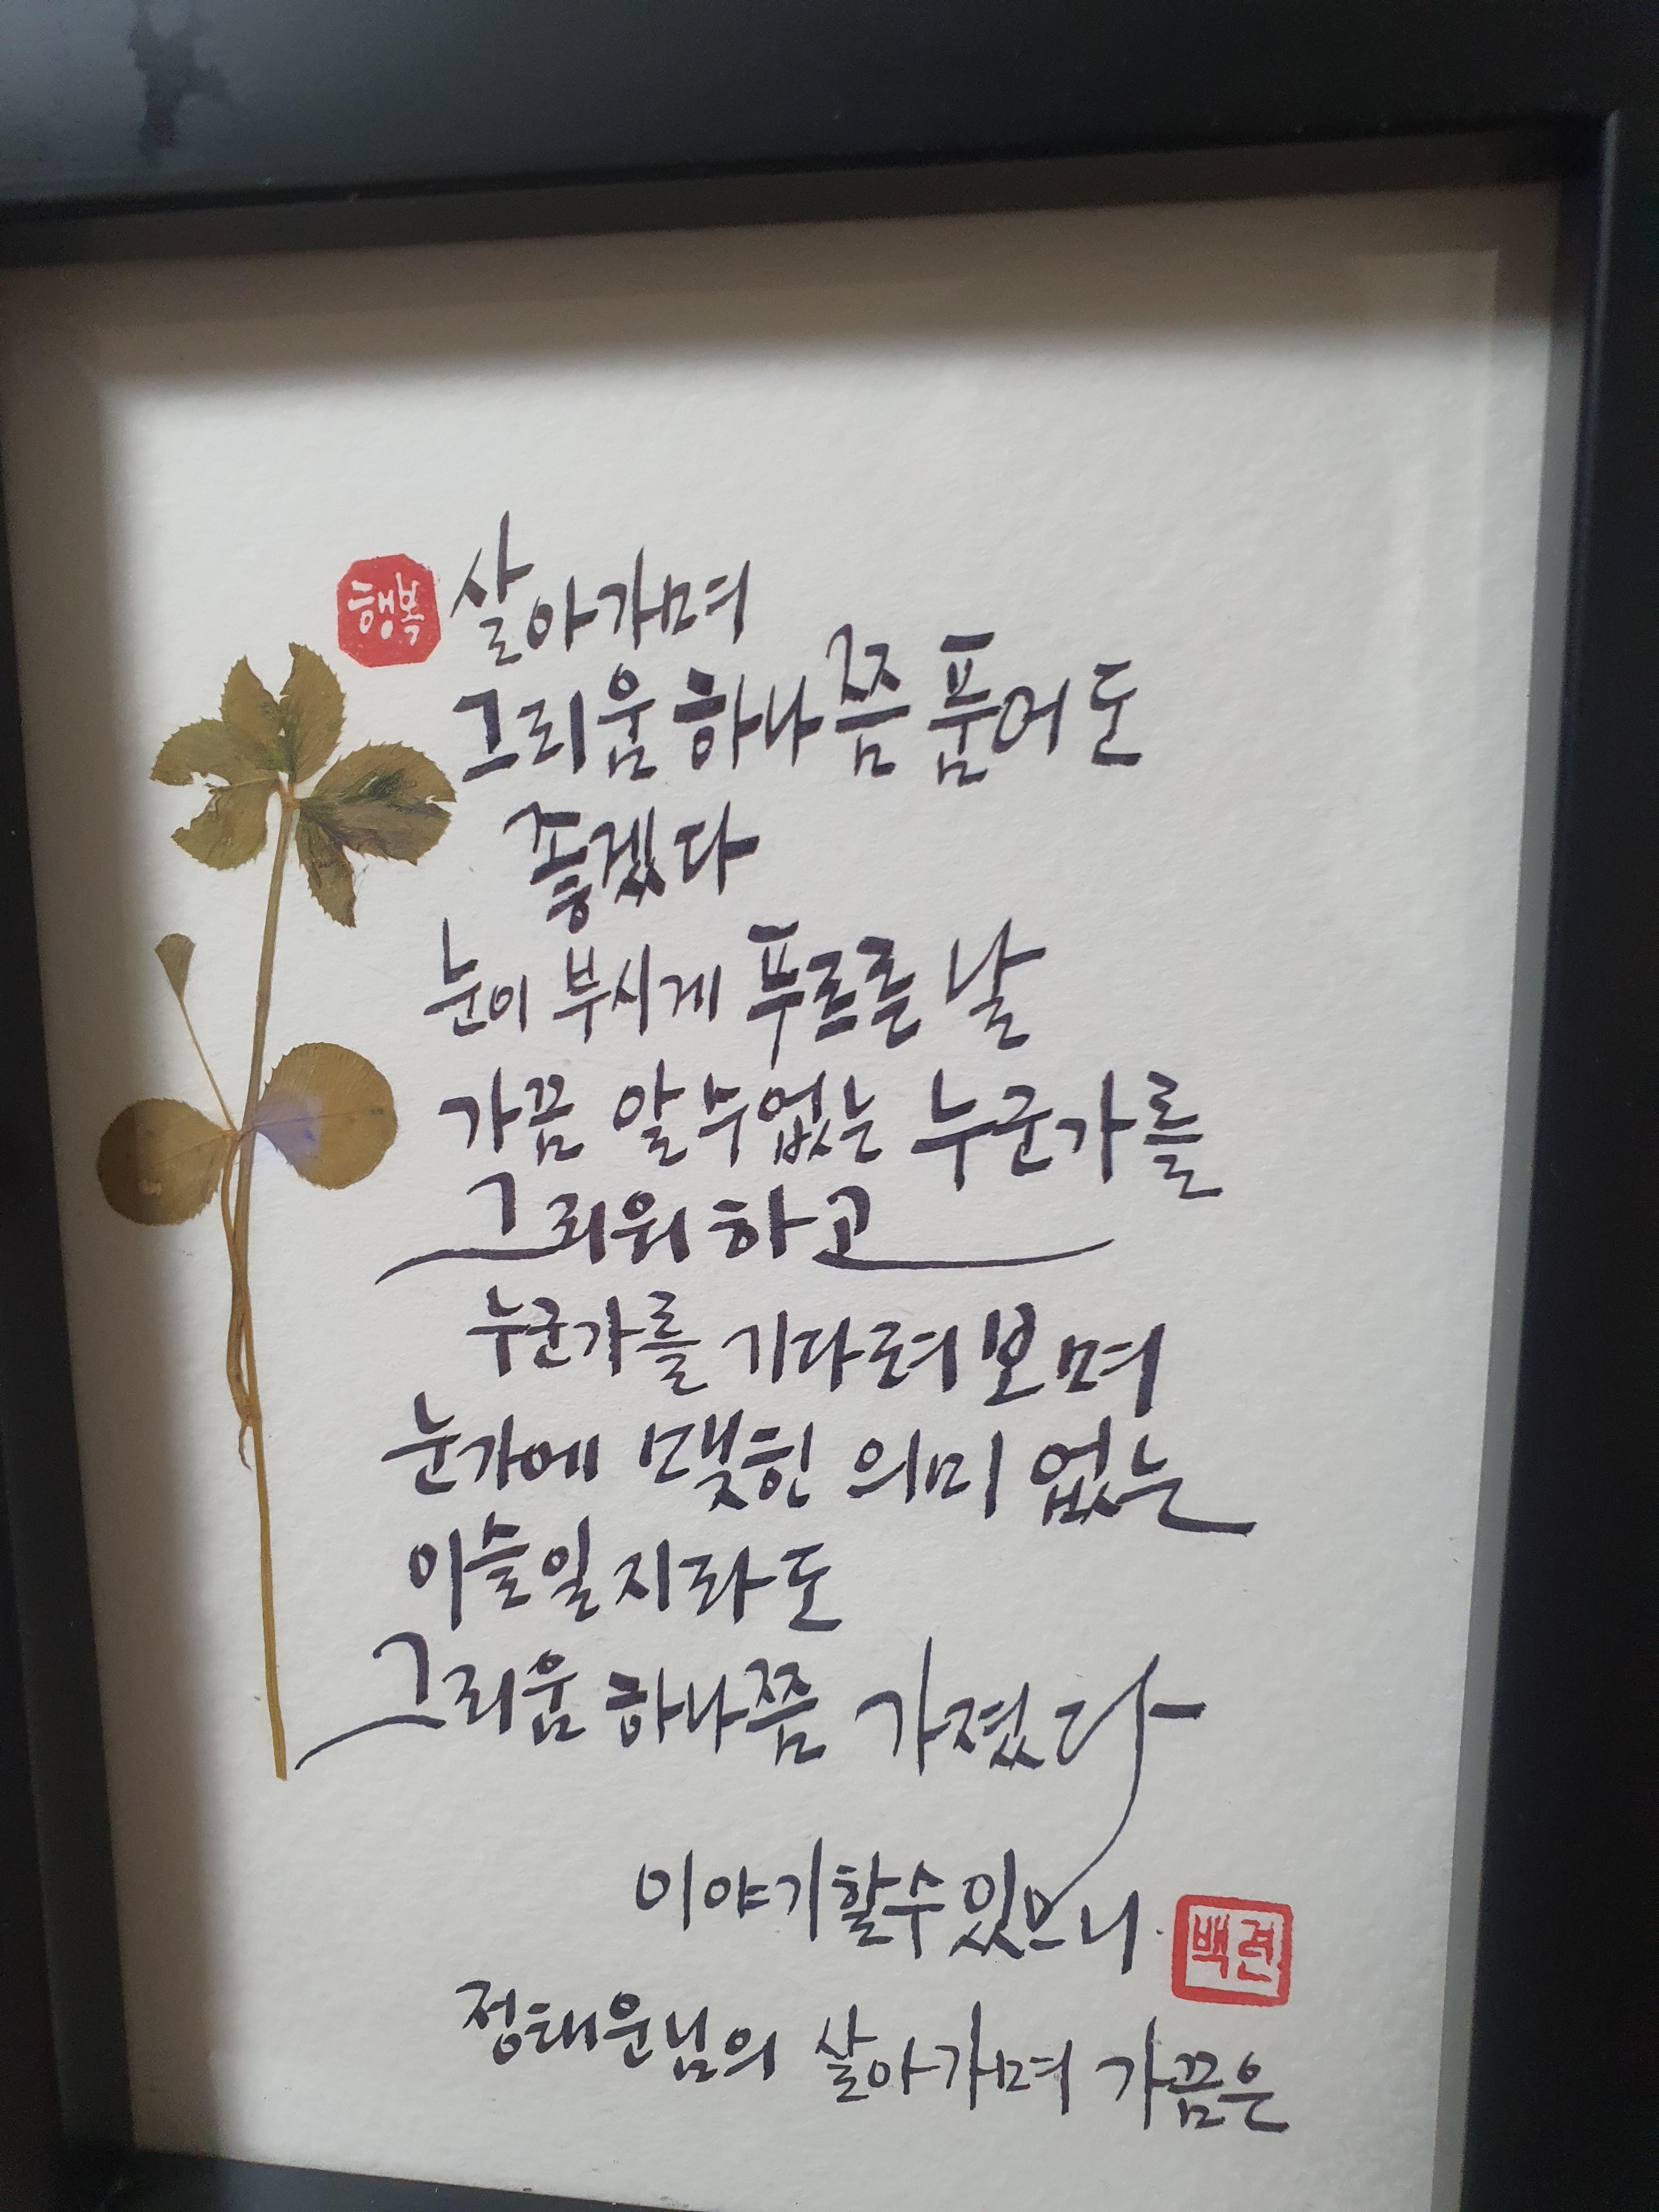 행복
살아가며
그리움 하나쯤 품어도
좋겠다
눈이 부시게 푸르른 날
가끔 알수없는 누군가를
그리워하고
누군가를 기다려보며
눈가에 맺힌 의미 없는
이슬일지라도
그리움 하나쯤 가졌다
이야기할수있으니
백련
정태운님의 살아가며 가끔은